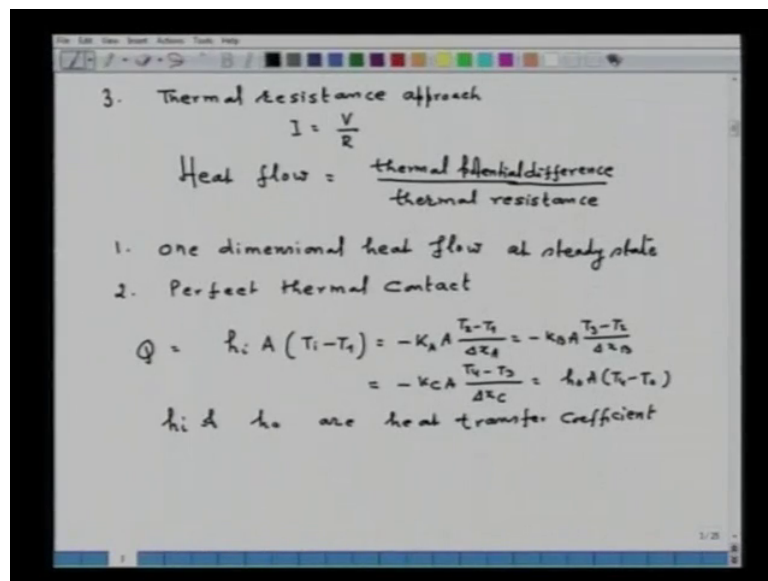 File Edit View Insert Actions Tools Help
3. Thermal resistance approach
I = V/R
Heat flow = thermal potential difference / thermal resistance
1. one dimensional heat flow at steady state
2. Perfect thermal contact
Q = hi A (Ti-T1) = -KA A (T2-T1)/ΔxA = -KB A (T3-T2)/ΔxB
= -KC A (T4-T3)/ΔxC = ho A (T4-To)
hi & ho are heat transfer coefficient